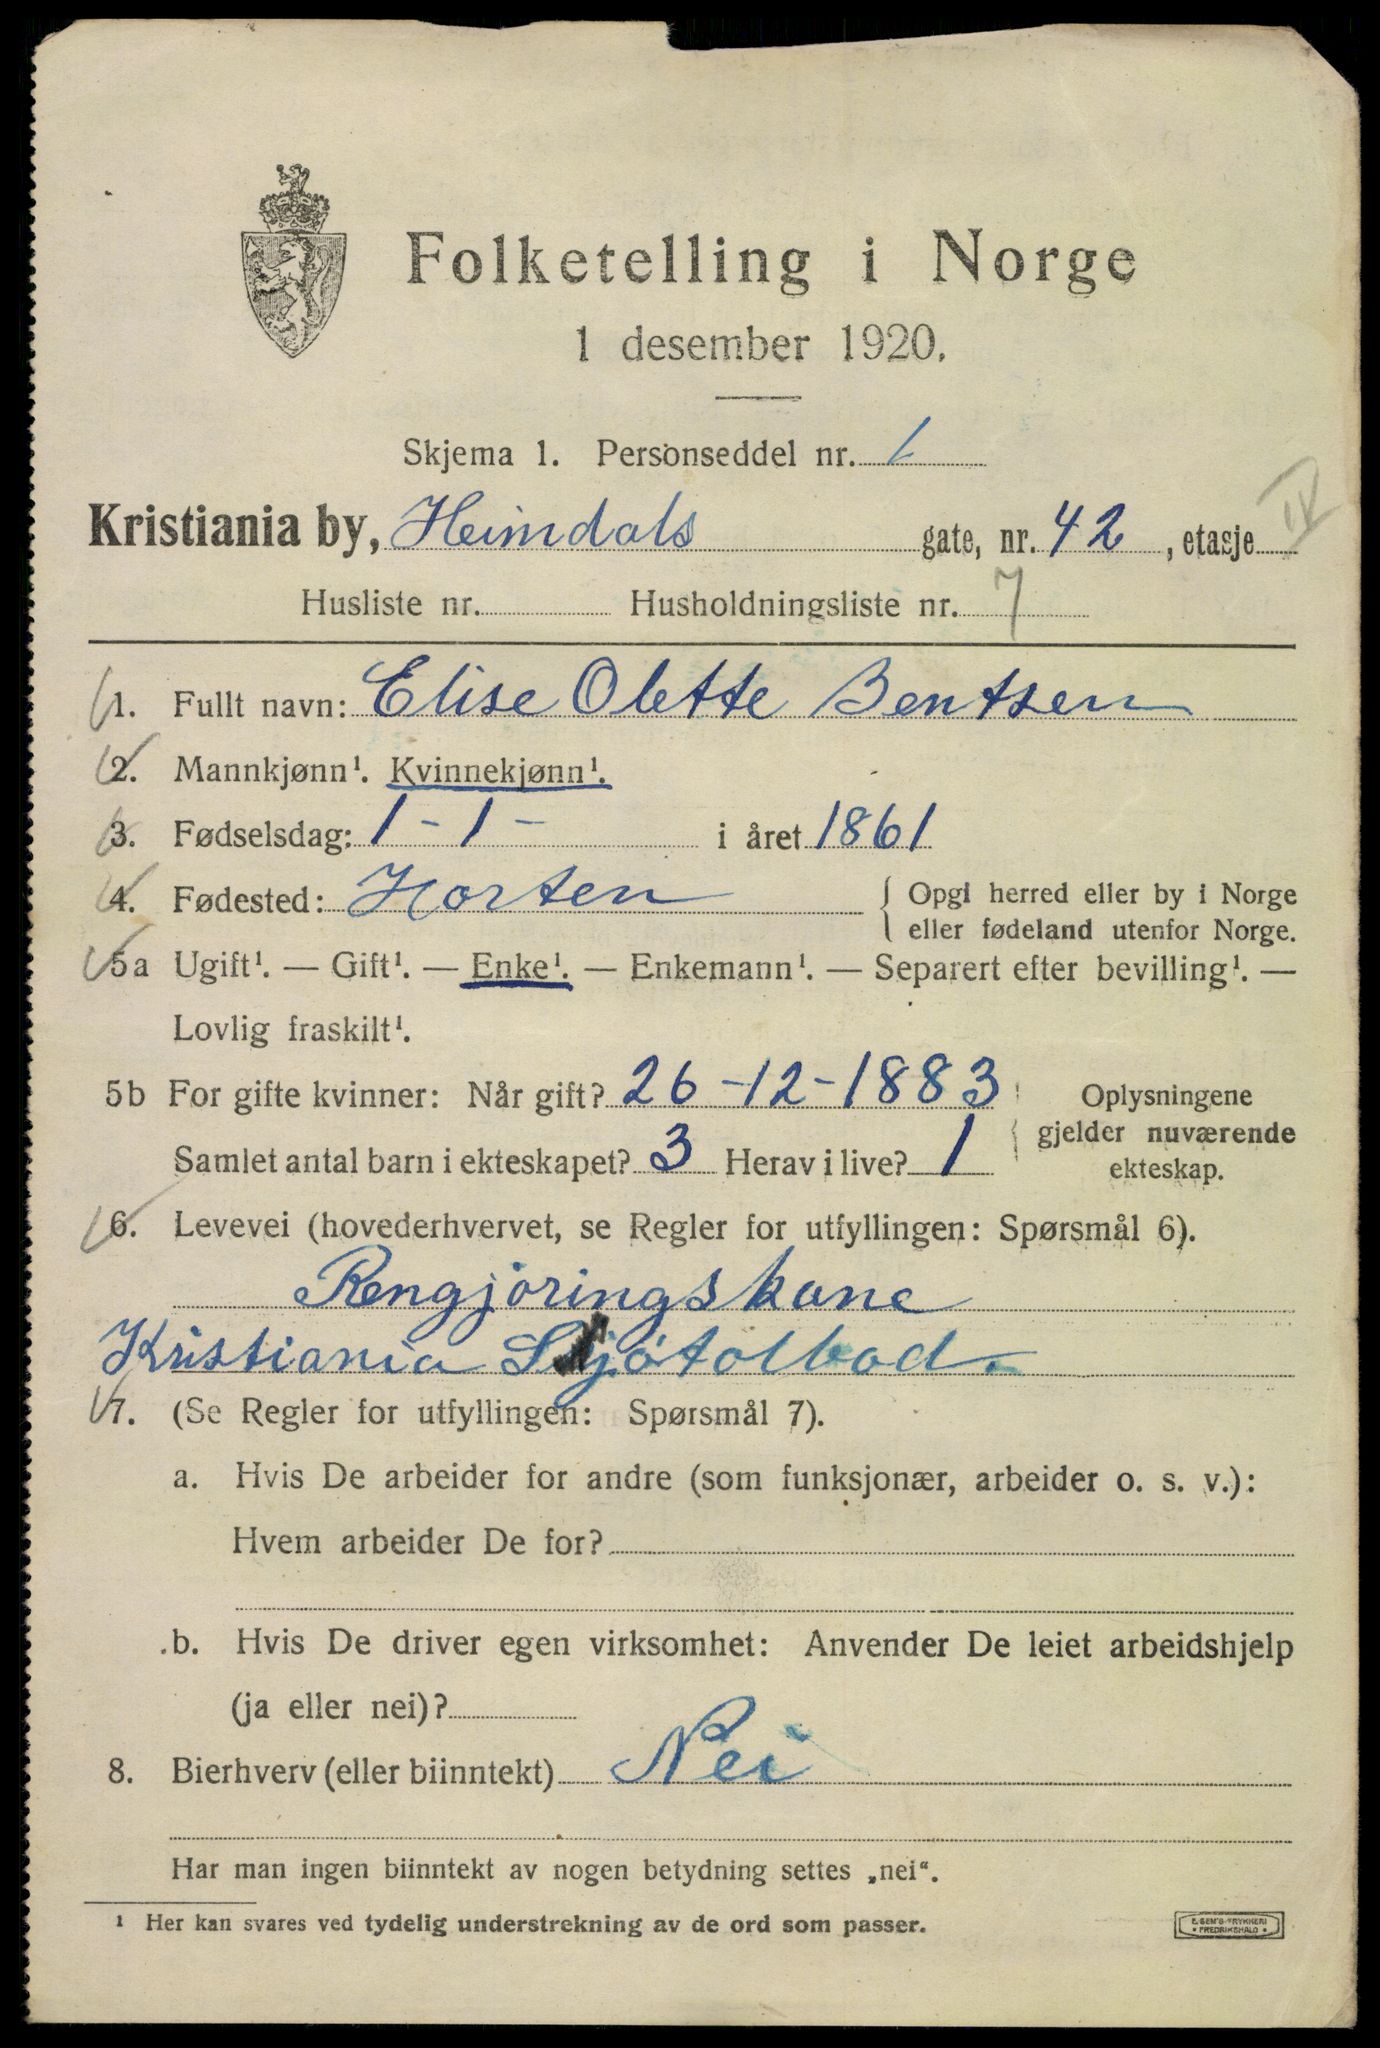 Folketelling i Norge
1 desember 1920.
Skjema 1. Personseddel nr. 1
Kristiania by, Heimdals gate, nr. 42, etasje IV
Husliste nr. Husholdningsliste nr. 7
1. Fullt navn: Elise Olette Bentsen
2. Mannkjønn¹. Kvinnekjønn¹.
3. Fødselsdag: 1 - 1 - i året 1861
4. Fødested: Horten { Opgi herred eller by i Norge
eller fødeland utenfor Norge.
5a Ugift¹. — Gift¹. — Enke¹. — Enkemann¹. — Separert efter bevilling¹. —
Lovlig fraskilt¹.
5b For gifte kvinner: Når gift? 26-12-1883 Oplysningene
gjelder nuværende
Samlet antal barn i ekteskapet? 3 Herav i live? 1 ekteskap.
6. Levevei (hovederhvervet, se Regler for utfyllingen: Spørsmål 6).
Rengjøringskone
Kristiania Sjøtolbod.
7. (Se Regler for utfyllingen: Spørsmål 7).
a. Hvis De arbeider for andre (som funksjonær, arbeider o. s. v.):
Hvem arbeider De for?
b. Hvis De driver egen virksomhet: Anvender De leiet arbeidshjelp
(ja eller nei)?
8. Bierhverv (eller biinntekt) Nei
Har man ingen biinntekt av nogen betydning settes „nei“.
¹ Her kan svares ved tydelig understrekning av de ord som passer.
FREDRIKSHALD